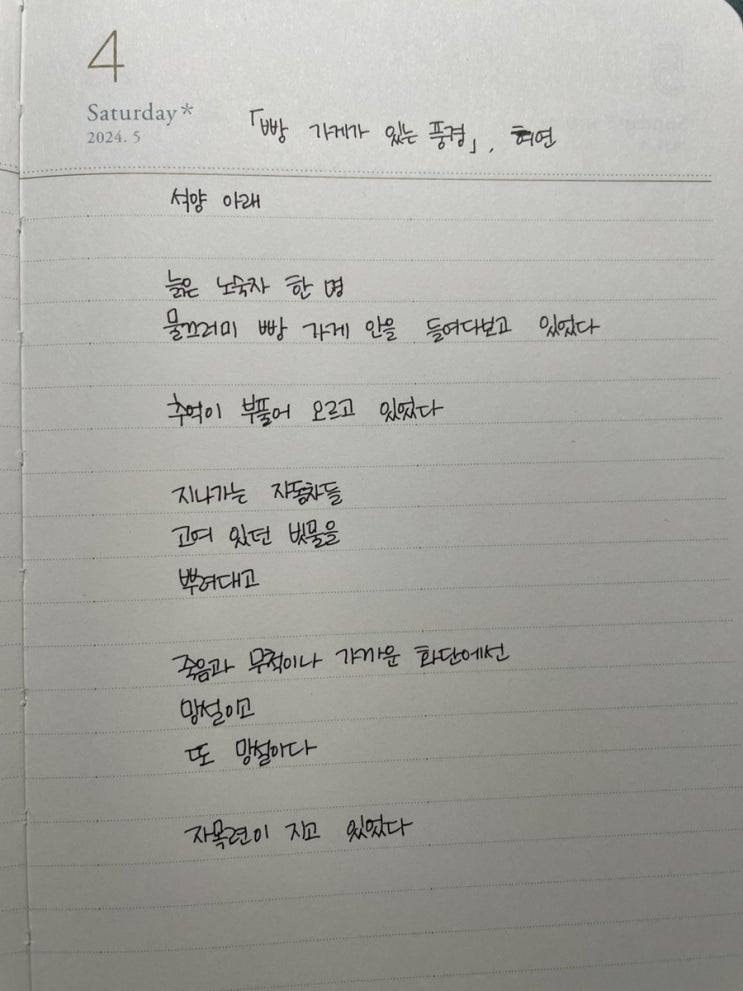 4
Saturday*
2024. 5
「빵 가게가 있는 풍경」, 허연
석양 아래
늙은 노숙자 한 명
물끄러미 빵 가게 안을 들여다보고 있었다
추억이 부풀어 오르고 있었다
지나가는 자동차들
고여 있던 빗물을
뿌려대고
죽음과 무척이나 가까운 화단에선
망설이고
또 망설이다
자목련이 지고 있었다